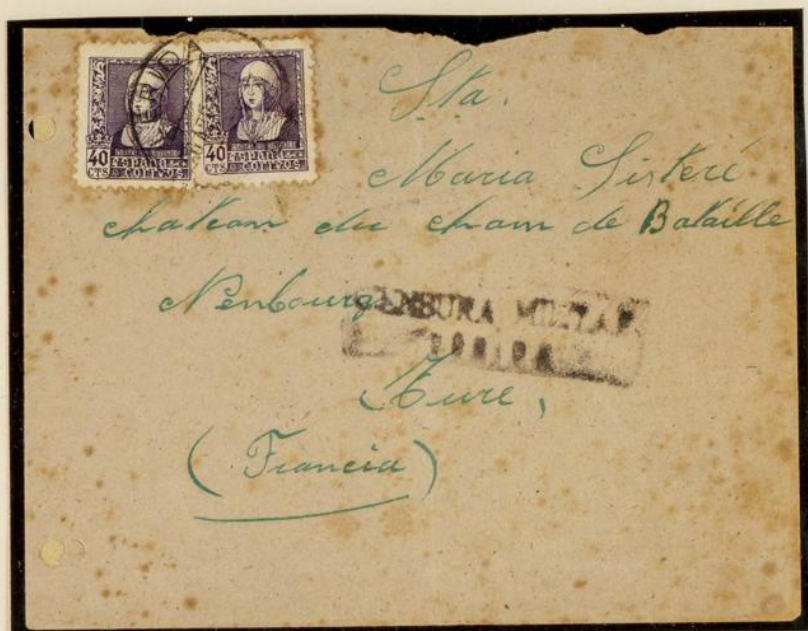 40 CTS ESPAÑA CORREOS 40 CTS ESPAÑA CORREOS
Sta.
Maria Sisteré
chateau du cham de Bataille
Nenbourg
CENSURA MILITAR
Eure,
(Francia)